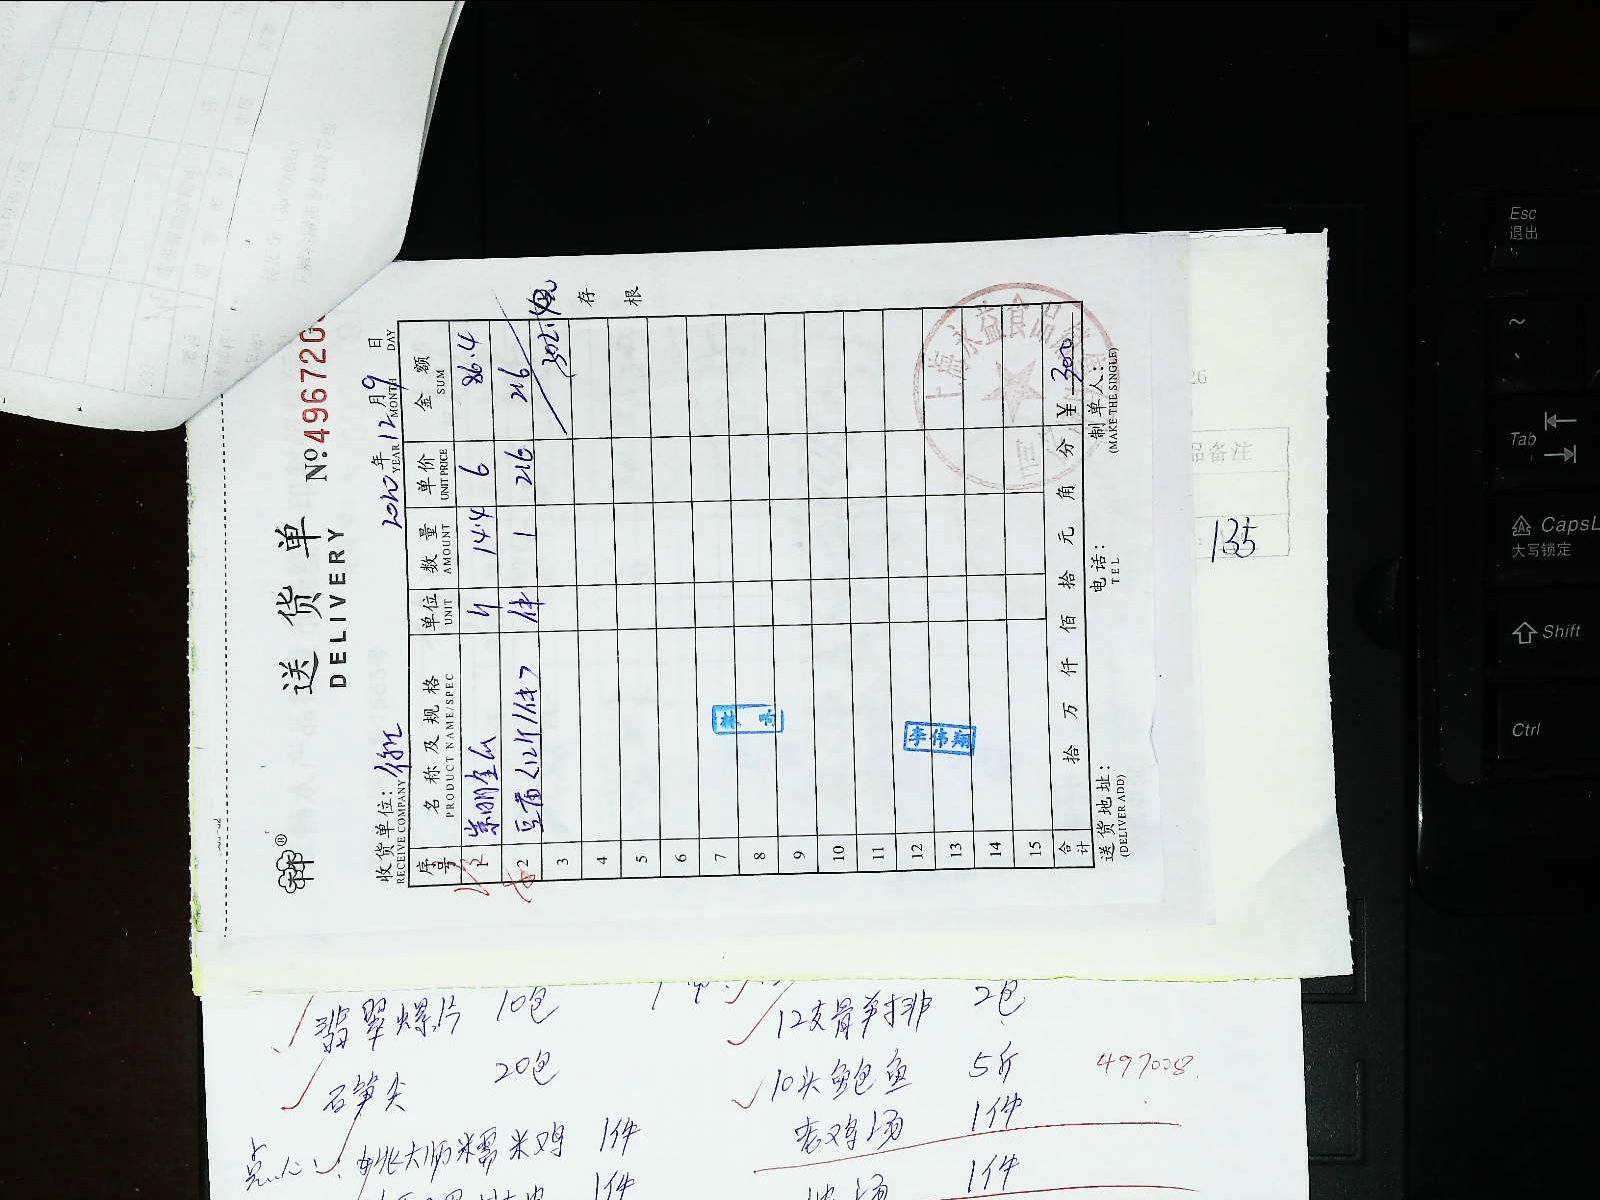 送 货 单
DELIVERY
№.496720
收货单位：
RECEIVE COMPANY
2020年12月9日
YEAR MONTH DAY
序号 名称及规格 单位 数量 单价 金额
PRODUCT NAME/SPEC UNIT AMOUNT UNIT PRICE SUM
1 斤 14.4 6 86.4
2 件 1 216 216
3 302.4
4
5
6
7
8
9
10
11
12
13
14
15
存根
李伟翔
上海永益食品
合计 拾 万 仟 佰 拾 元 角 分 ¥ 300
送货地址： 电话： 制单人：
(DELIVER ADD) TEL (MAKE THE SINGLE)
26
品备注
135
翡翠螺片 10包
石笋尖 20包
大师糯米鸡 1件
1件
12支骨笋排 2包
10头鲍鱼 5斤
497008
老鸡汤 1件
1件
Esc
退出
~
Tab
CapsL
大写锁定
Shift
Ctrl